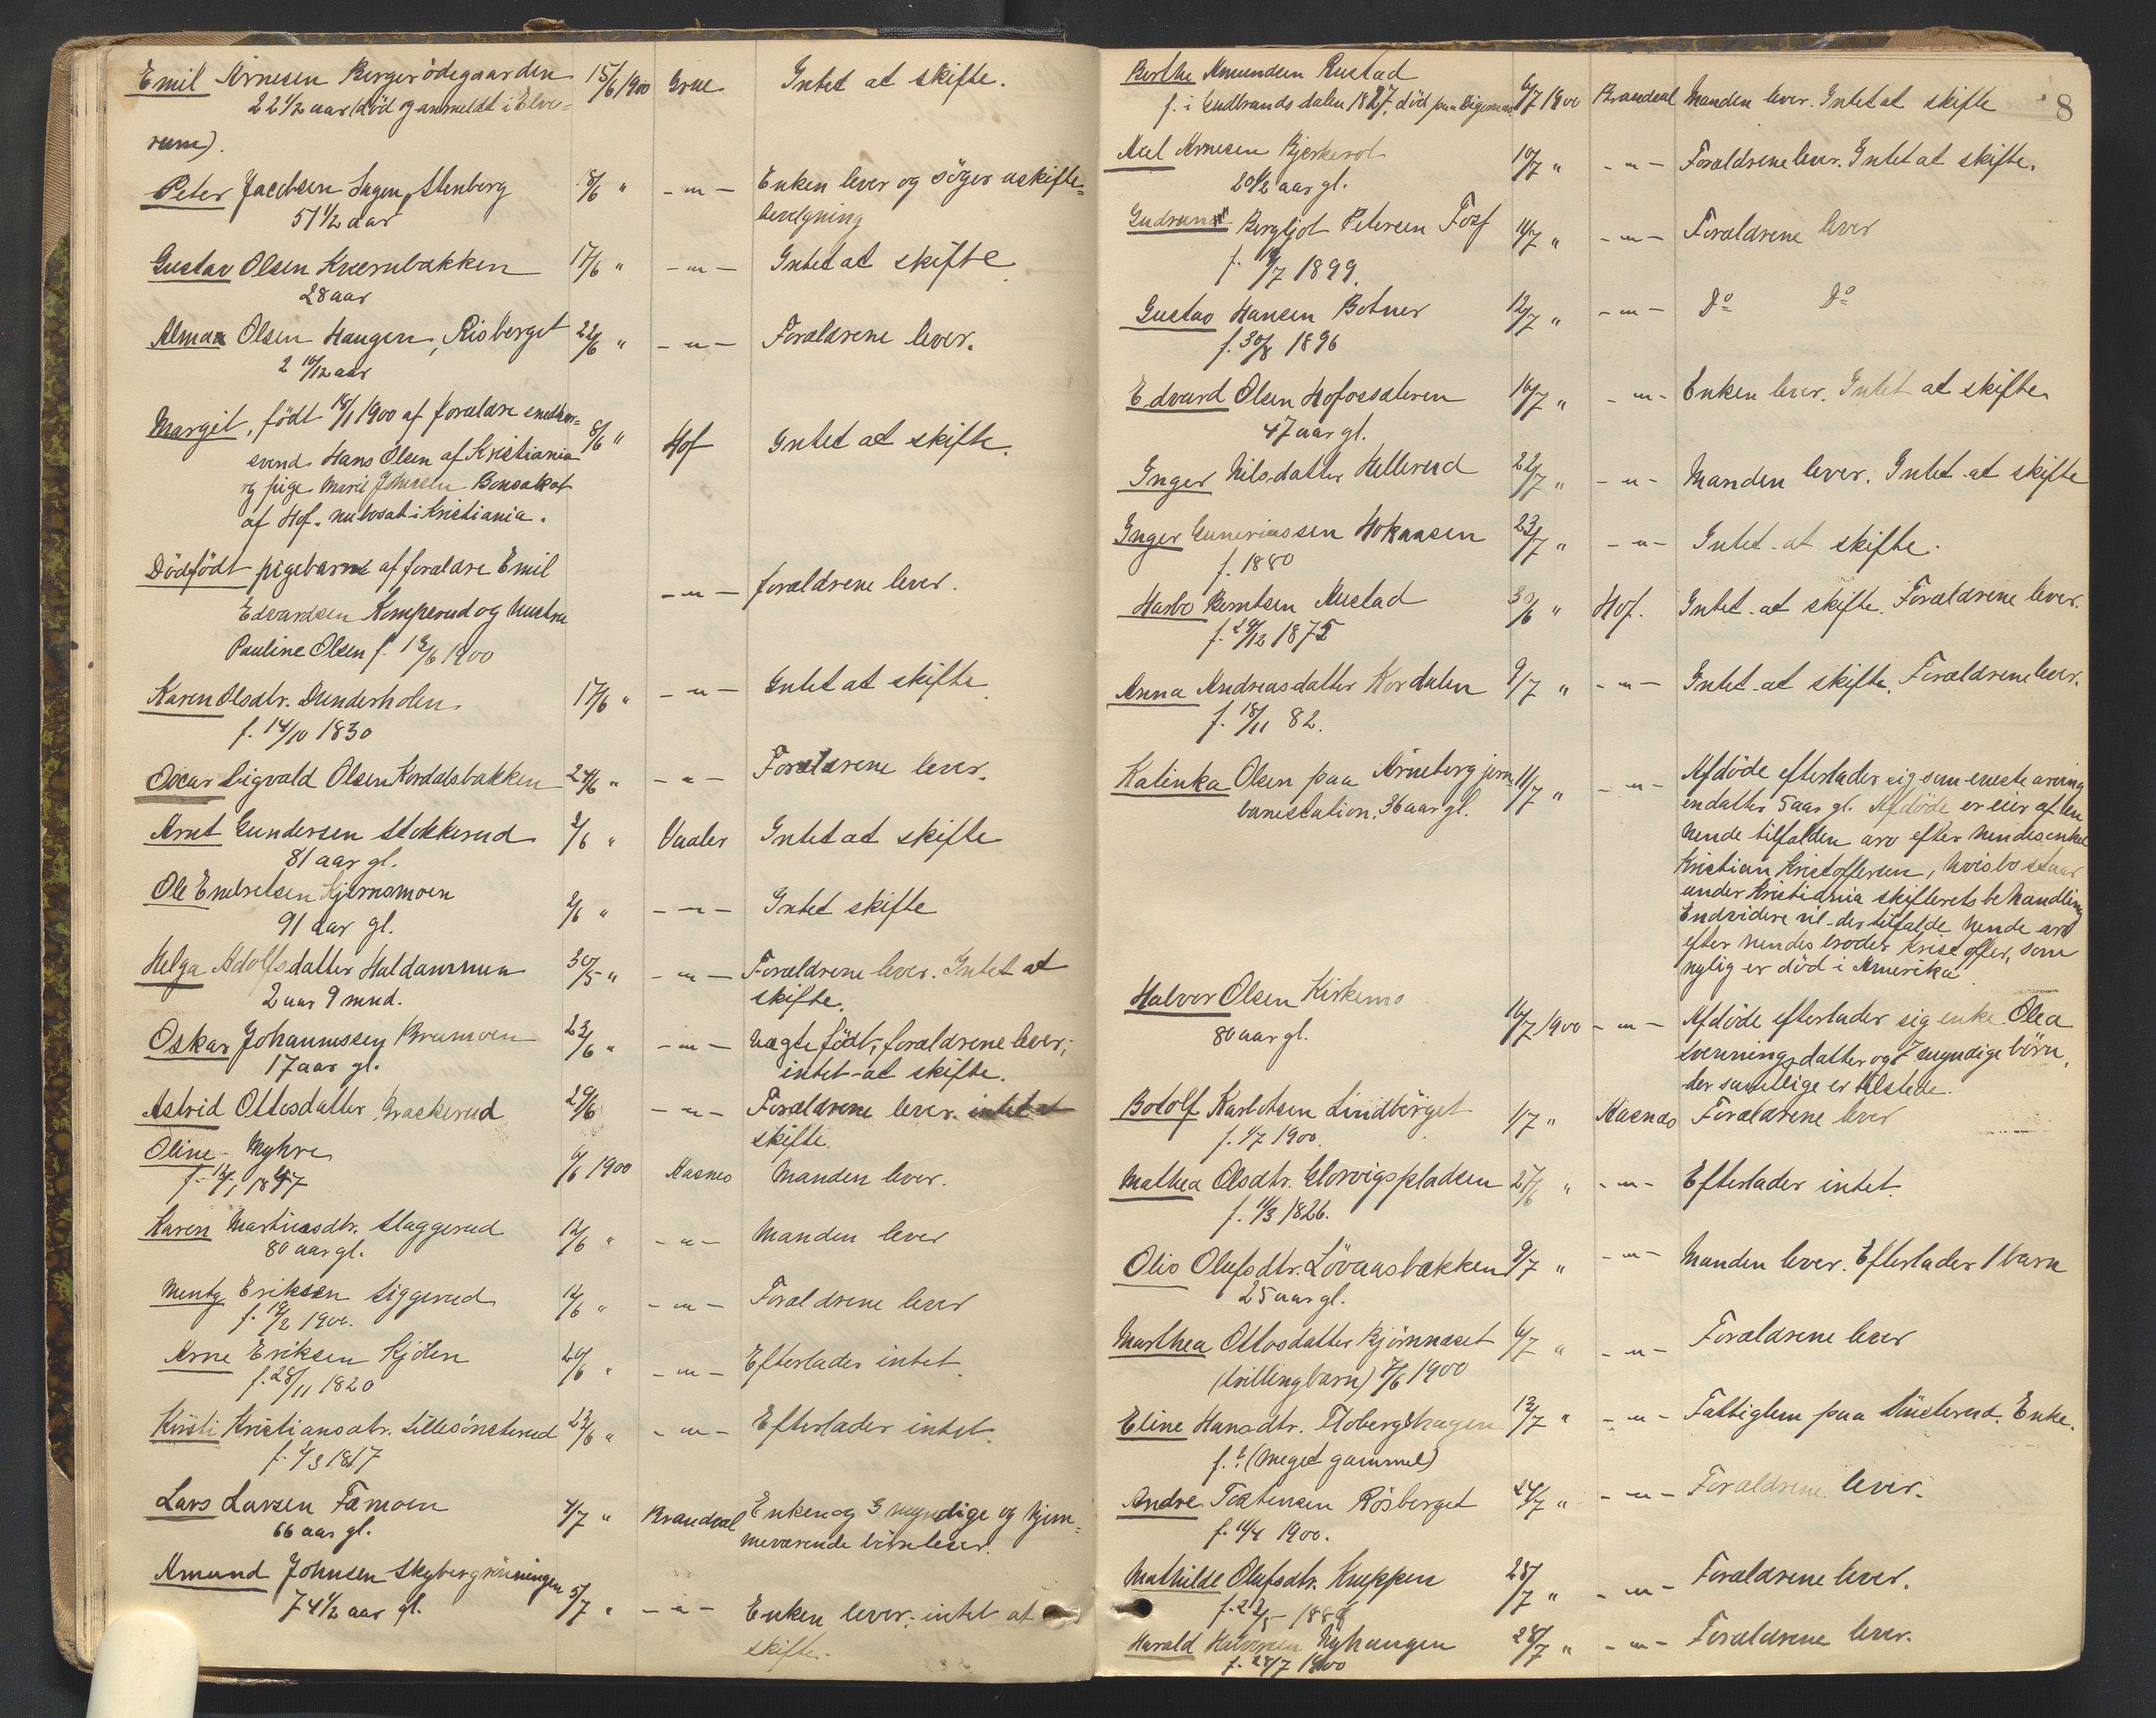 Emil Arnesen Bergerödegaarden 15/6 1900 Grue Intet at skifte.
22 1/2 aar (död og anmeldt i Elve-
rum).
Peter Jacobsen Hagen, Stenberg 8/6 " -"- Enken lever og söger uskifte-
51 1/2 aar bevilgning
Gustav Olsen Kvernbakken 17/6 " -"- Intet at skifte
28 aar
Alma Olsen Haugen, Risberget 22/6 " -"- Forældrene lever.
2 10/12 aar
Margit, födt 18/1 1900 af forældre snedker-
svend Hans Olsen af Kristiania 8/6 " Hof Intet at skifte.
og pige Marie Johnsen Bonsaksf
af Hof. nu bosat i Kristiania.
Dödfödt pigebarn af forældre Emil
Edvardsen Komperud og hustru -"- forældrene lever.
Pauline Olsen f. 13/6 1900
Karen Olsdtr. Dunderholen 17/6 " -"- Intet at skifte
f. 14/10 1830
Oscar Sigvald Olsen Kordalsbakken 24/6 " -"- Forældrene lever.
Arnt Gundersen Stokkerud 2/6 " Vaaler Intet at skifte
81 aar gl.
Ole Embretsen Kjernsmoen 2/6 " -"- Intet skifte
91 aar gl.
Helga Adolfsdatter Haldammen 30/5 " -"- Forældrene lever. Intet at
2 aar 9 mnd. skifte.
Oskar Johannessen Brumoen 23/6 " -"- Uægte födt; forældrene lever;
17 aar gl. intet at skifte.
Astrid Ottesdatter Grackerud 29/6 -"- Forældrene lever. intet at
skifte
Oline Myhre 6/6 1900 Aasnes Manden lever.
f. 12/1 1847
Karen Martinsdtr. Slaggerud 12/6 " -"- Manden lever
80 aar gl.
Menty Eriksen Siggerud 14/6 " -"- Forældrene lever
f. 19/2 1900.
Arne Eriksen Kjölen 20/6 " -"- Efterlader intet.
f. 28/11 1820
Kirsti Kristiansdtr. Lillesönsterud 23/6 " -"- Efterlader intet.
f. 4/3 1817
Lars Larsen Fæmoen 4/7 " Brandval Enken og 3 myndige og hjem-
66 aar gl. meværende börn lever.
Amund Johnsen Skybergrönningen 5/7 " -"- Enken lever. intet at
74 1/2 aar gl. skifte.
8
Berthe Amundsen Rustad
f. i Gudbrandsdalen 1827, död paa Digernæs 6/7 1900 Brandval Manden lever. Intet at skifte
Axel Arnesen Bjerkerot 10/7 " -"- Forældrene lever. Intet at skifte.
20 1/2 aar gl.
Gudrun Bergljot Petersen Fosf 11/7 " -"- Forældrene lever
f. 19/7 1899.
Gustav Hansen Botner 12/7 " -"- Do Do
f. 30/8 1896
Edvard Olsen Hofossæteren 16/7 " -"- Enken lever. Intet at skifte
47 aar gl.
Inger Nilsdatter Hellerud 22/7 " -"- Manden lever. Intet at skifte
Inger Gunerinssen Hokaasen 23/7 " -"- Intet at skifte.
f. 1880
Hasbo Berntsen Austad 30/6 " Hof. Intet at skifte. Forældrene lever.
f. 29/12 1875
Anna Andreasdatter Kordalen 9/7 " -"- Intet at skifte. Forældrene lever.
f. 18/11 82.
Kalinka Olsen paa Arneberg jern- 11/7 " -"- Afdöde efterlader sig som eneste arving
banestation, 36 aar gl. en datter 5 aar gl. Afdöde er eier af en
hende tilfalden arv efter hendes onkel
Kristian Kristoffersen, hvis bo staar
under Kristiania skifterets behandling
Endvidere vil der tilfalde hende arv
efter hendes broder Kristoffer, som
nylig er död i Amerika
Halvor Olsen Kirkemo 16/7 1900 -"- Afdöde efterlader sig enke Olea
80 aar gl. Svenningsdatter og 7 myndige börn,
der samtlige er tilstede.
Botolf Karlotsen Lindberget 1/7 " Aasnæs Forældrene lever
f. 1/7 1900.
Mathea Olsdtr. Glorvigspladsen 27/6 " -"- Efterlader intet.
f. 11/3 1826.
Olis Olufsdtr. Lövaasbakken 9/7 " -"- Manden lever. Efterlader 1 barn
25 aar gl.
Marthea Ottosdatter Björnnæset 6/7 " -"- Forældrene lever
(tvillingbarn) 7/6 1900
Eline Hansdtr. Flobergshagen 13/7 " -"- Fattiglem paa Sönsterud. Enke.
f. ? (meget gammel)
Andre Tostensen Rösberget 24/7 " -"- Forældrene lever.
f. 11/4 1900.
Mathilde Olufsdtr. Kneppen 28/7 " -"- Forældrene lever.
f. 23/5 1888
Harald Halvorsen Nyhaugen 28/7 " -"- Forældrene lever.
f. 28/7 1900